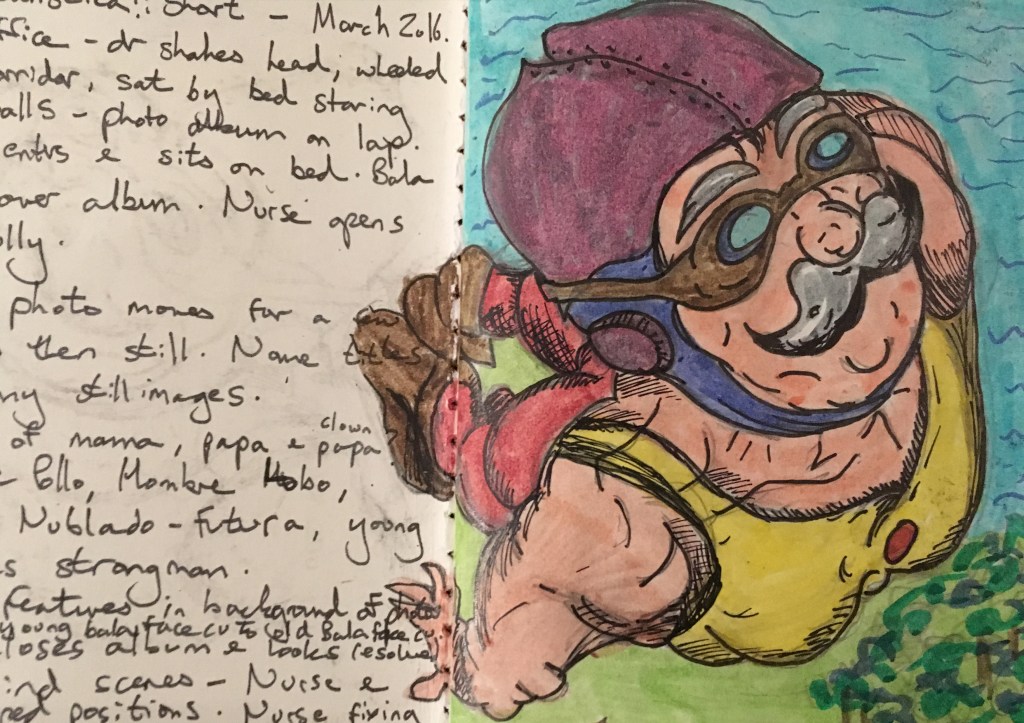 Short - March 2016.
- dr shakes head, wheeled
sat by bed staring
- photo album on lap.
e sits on bed. Bala
over album. Nurse opens
photo moves for a
then still. Name titles
still images.
of mama, papa e clown papa
Pollo, Hombre Lobo,
Nublado - Futura, young
strongman.
features in background of photo
young bala face cu to old Bala face cu.
closes album e looks resolved
scenes - Nurse e
positions. Nurse fixing